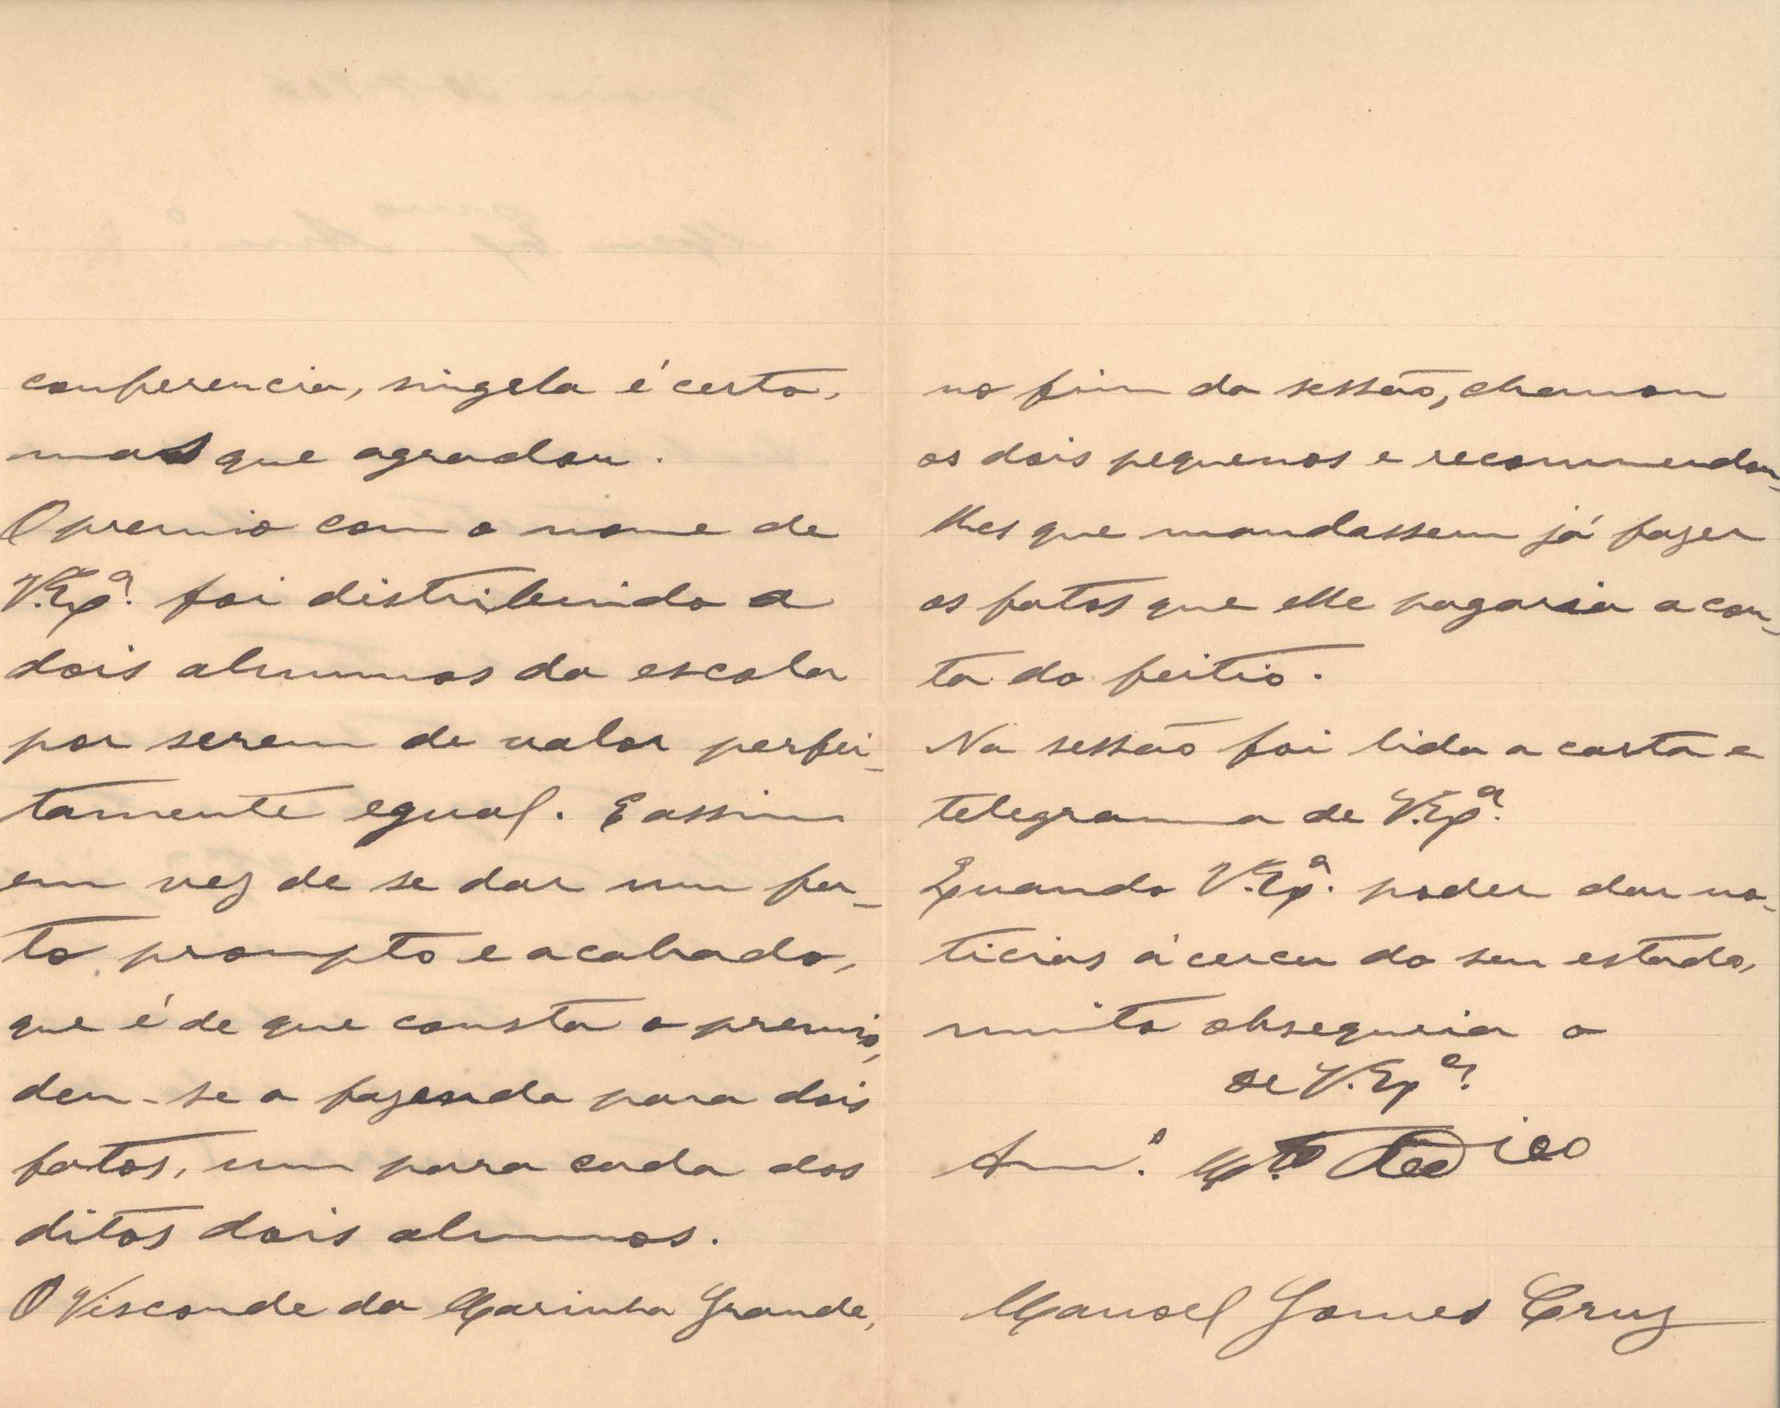 conferencia, singela é certo,
mas que agradou.
O premio com o nome de
V. Exª. foi distribuido a
dois alumnos da escola
por serem de valor perfei-
tamente egual. E assim
em vez de se dar um fa-
to prompto e acabado,
que é de que consta o premio,
deu-se a fazenda para dois
fatos, um para cada dos
ditos dois alumnos.
O Visconde da Marinha Grande,
no fim da sessão, chamou
os dois pequenos e recommendou-
lhes que mandassem já fazer
os fatos que elle pagaria a con-
ta do feitio.
Na sessão foi lida a carta e
telegramma de V. Exª.
Quando V. Exª. poder dar no-
ticias ácerca do seu estado,
muito obsequeia o
de V. Exª.
Am.º Mt.º
Manoel Gomes Cruz